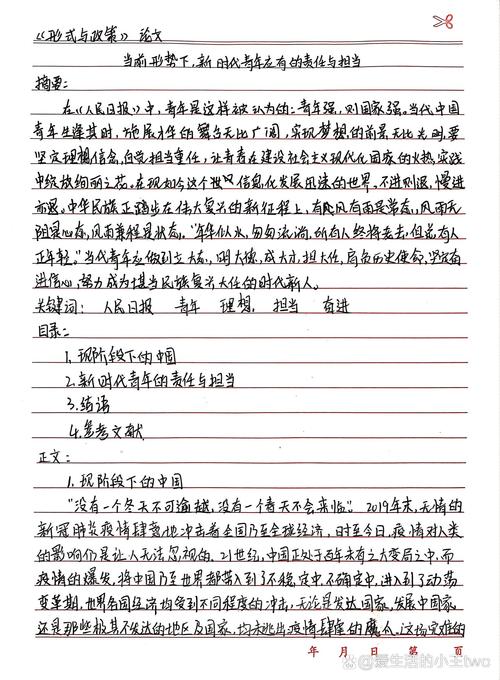 《形式与政策》论文
当前形势下,新时代青年应有的责任与担当
摘要:
在《人民日报》中,青年是这样被认为的:青年强,则国家强。当代中国
青年生逢其时,施展才华的舞台无比广阔,实现梦想的前景无比光明,要
坚定理想信念,自觉担当重任,让青春在建设社会主义现代化国家的火热实践
中绽放绚丽之花。在现如今这个世界信息化发展迅速的世界。不进则退,慢进
亦退。中华民族正踏步在伟大复兴的新征程上,有风有雨是常态,风雨无
阻是心态,风雨兼程是状态。"年华似水,匆匆流淌,所有人终将老去,但总有人
正年轻。"当代青年应做到立大志,明大德,成大才,担大任,肩负历史使命,坚定前
进信心,努力成为堪当民族复兴大任的时代新人。
关键词: 人民日报 青年 理想, 担当 奋进
目录:
1.现阶段下的中国
2.新时代青年的责任与担当
3.结语
4.参考文献
正文:
1.现阶段下的中国
"没有一个冬天不可逾越,没有一个春天不会来临。"2019年末,无情的
新冠肺炎疫情肆虐地冲击着全国乃至全球经济,时至今日,疫情对人类
的影响仍是让人无法忽视的。21世纪,中国正处于百年未有之大变局之中,而
疫情的爆发,将中国乃至世界都带入到了不稳定中,不确定中,进入到了动荡
变革期,世界各国经济均受到不同程度的冲击,无论是发达国家,发展中国家,
还是那些极其不发达的地区及国家,均未逃出疫情肆虐的魔爪。这场灾难的
年 月 日 第 页
@爱生活的小王two